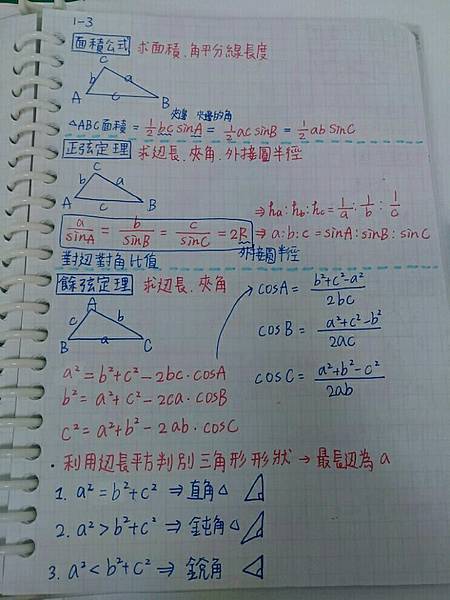 1-3
面積公式 求面積、角平分線長度
C
b a
A c B
夾邊 夾邊的角
△ABC面積 = 1/2 bc sinA = 1/2 ac sinB = 1/2 ab sinC
正弦定理 求边長、夾角、外接圓半徑
C
b a
A c B
⇒ ha:hb:hc = 1/a : 1/b : 1/c
a/sinA = b/sinB = c/sinC = 2R ⇒ a:b:c = sinA:sinB:sinC
對边對角比值 外接圓半徑
餘弦定理 求边長、夾角
A
c b
B a C
cosA = b²+c²-a²/2bc
cosB = a²+c²-b²/2ac
cosC = a²+b²-c²/2ab
a² = b²+c²-2bc·cosA
b² = a²+c²-2ca·cosB
c² = a²+b²-2ab·cosC
・利用边長平方判別三角形形狀 → 最長边為a
1. a² = b²+c² ⇒ 直角△
2. a² > b²+c² ⇒ 鈍角△
3. a² < b²+c² ⇒ 銳角